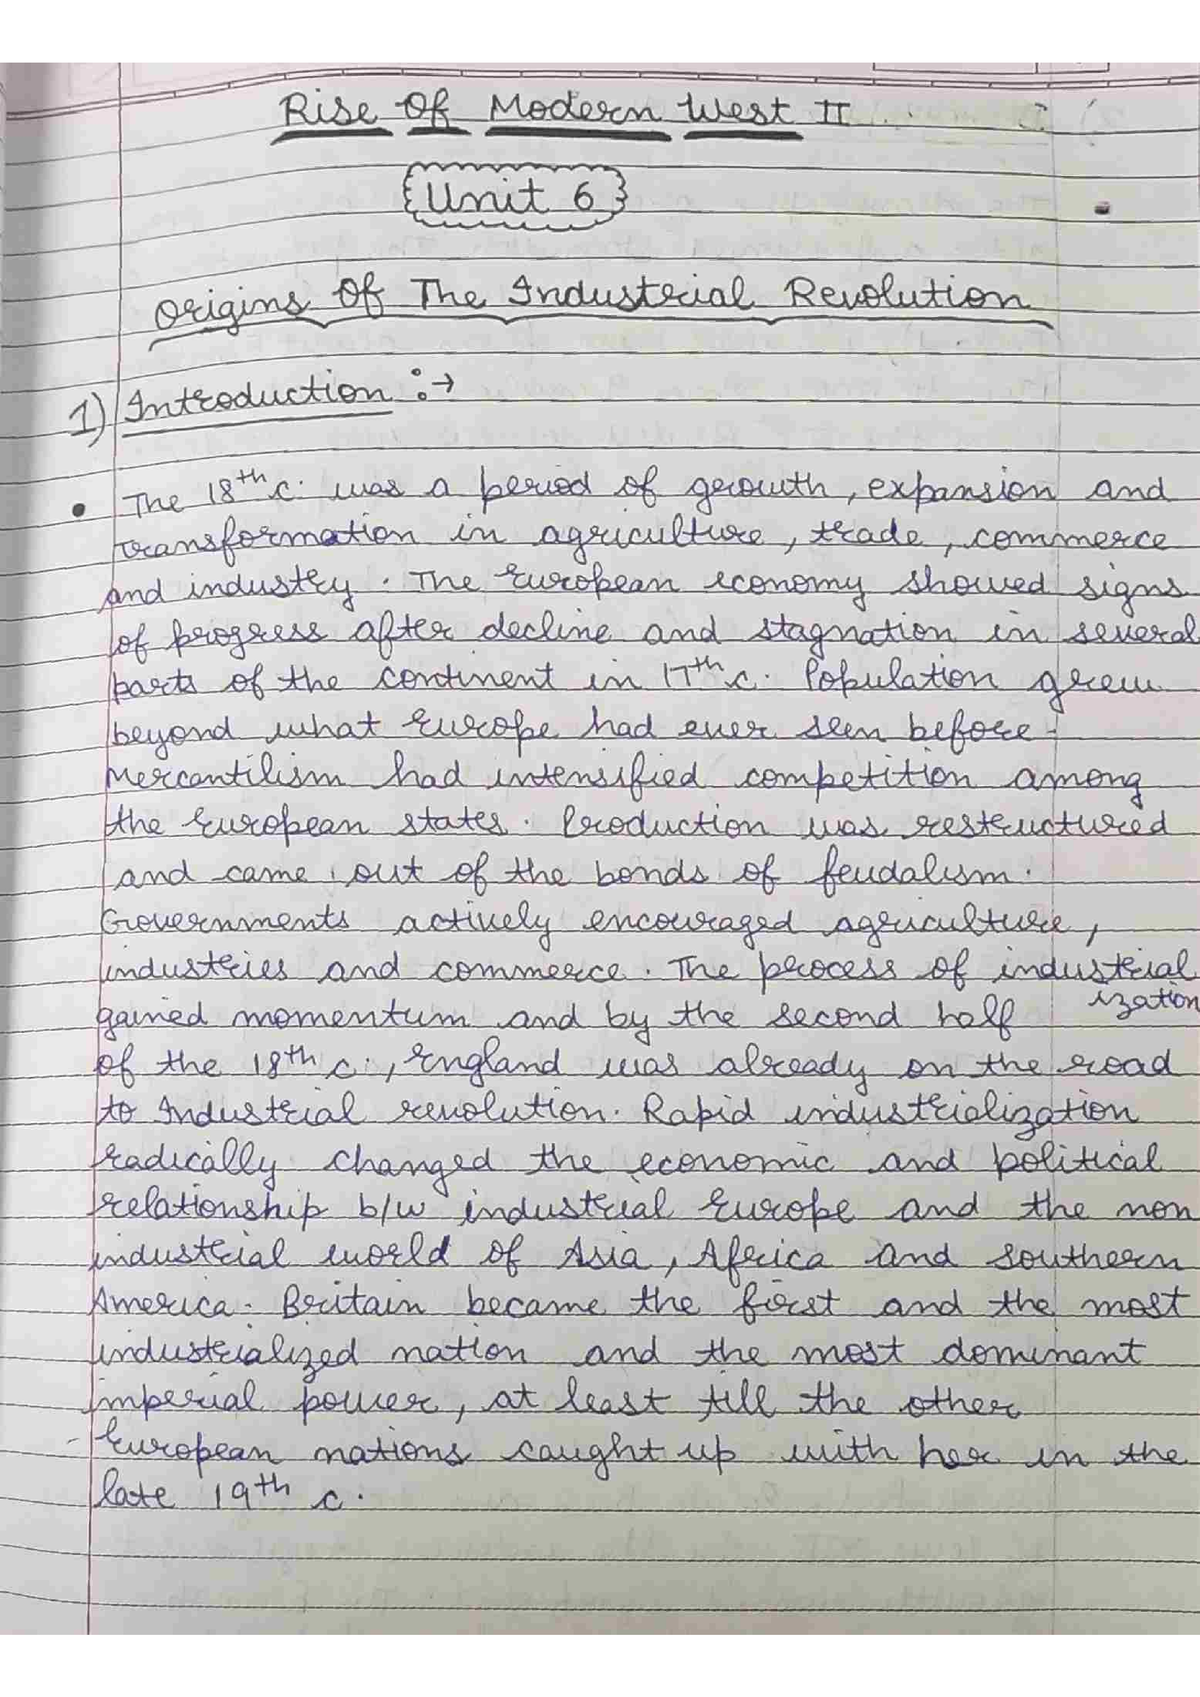 Rise Of Modern West II
Unit 6
Origins Of The Industrial Revolution
1) Introduction :→
• The 18th c. was a period of growth, expansion and
transformation in agriculture, trade, commerce
and industry. The European economy showed signs
of progress after decline and stagnation in several
parts of the continent in 17th c. Population grew
beyond what Europe had ever seen before.
Mercantilism had intensified competition among
the European states. Production was restructured
and came out of the bonds of feudalism.
Governments actively encouraged agriculture,
industries and commerce. The process of industrial
ization
gained momentum and by the second half
of the 18th c., England was already on the road
to Industrial revolution. Rapid industrialization
radically changed the economic and political
relationship b/w industrial Europe and the non
industrial world of Asia, Africa and Southern
America. Britain became the first and the most
industrialized nation and the most dominant
imperial power, at least till the other
European nations caught up with her in the
late 19th c.